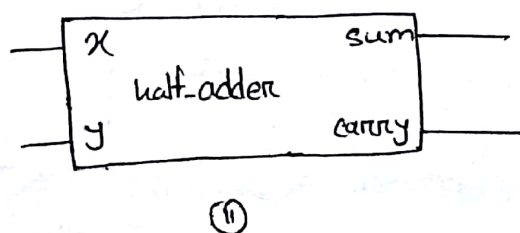 x sum
half-adder
y carry
11